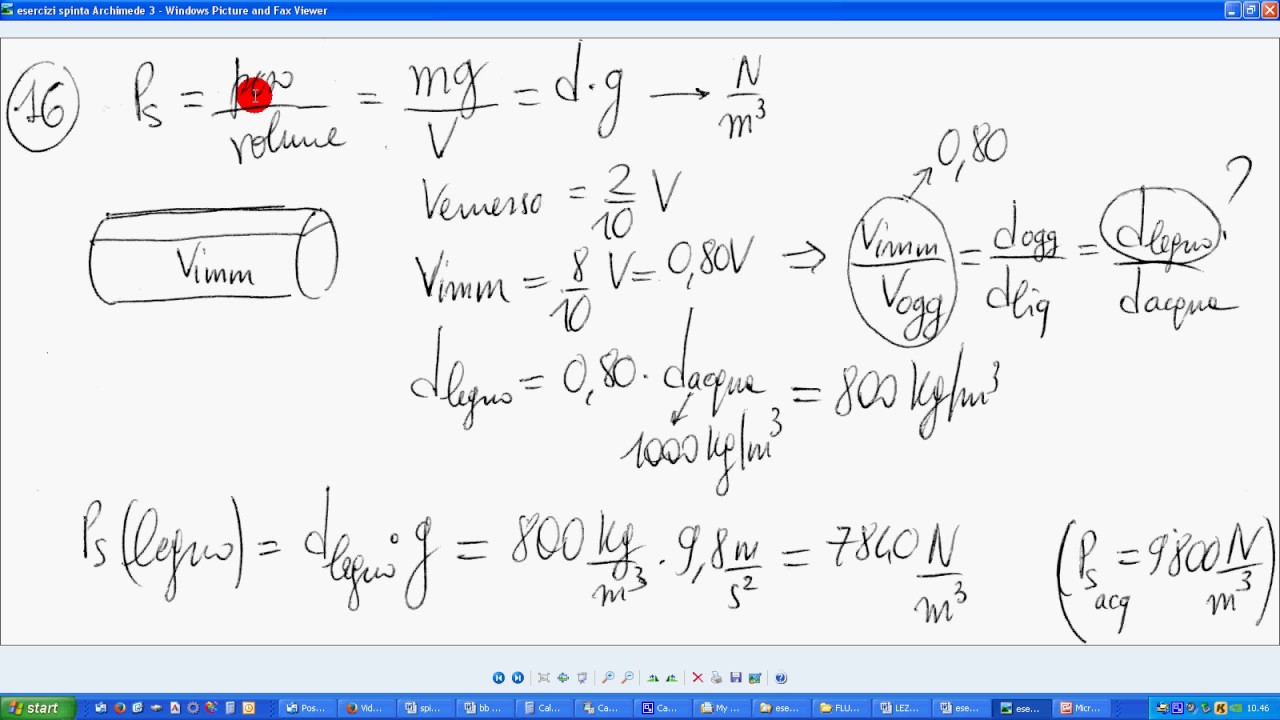 esercizi spinta Archimede 3 - Windows Picture and Fax Viewer
16 Ps = peso/volume = mg/V = d·g → N/m³
Vemerso = 2/10 V
0,80
Vimm
Vimm = 8/10 V = 0,80V ⇒ Vimm/Vogg = dogg/dliq = dlegno/dacqua ?
dlegno = 0,80 · dacqua = 800 kg/m³
1000 kg/m³
Ps (legno) = dlegno · g = 800 kg/m³ · 9,8 m/s² = 7840 N/m³ (Ps acq = 9800 N/m³)
start Pos... Vid... spi... bb ... Cal... Ca... Ca... My ... ese... FLU... LEZ... ese... ese... Micr... 10.46